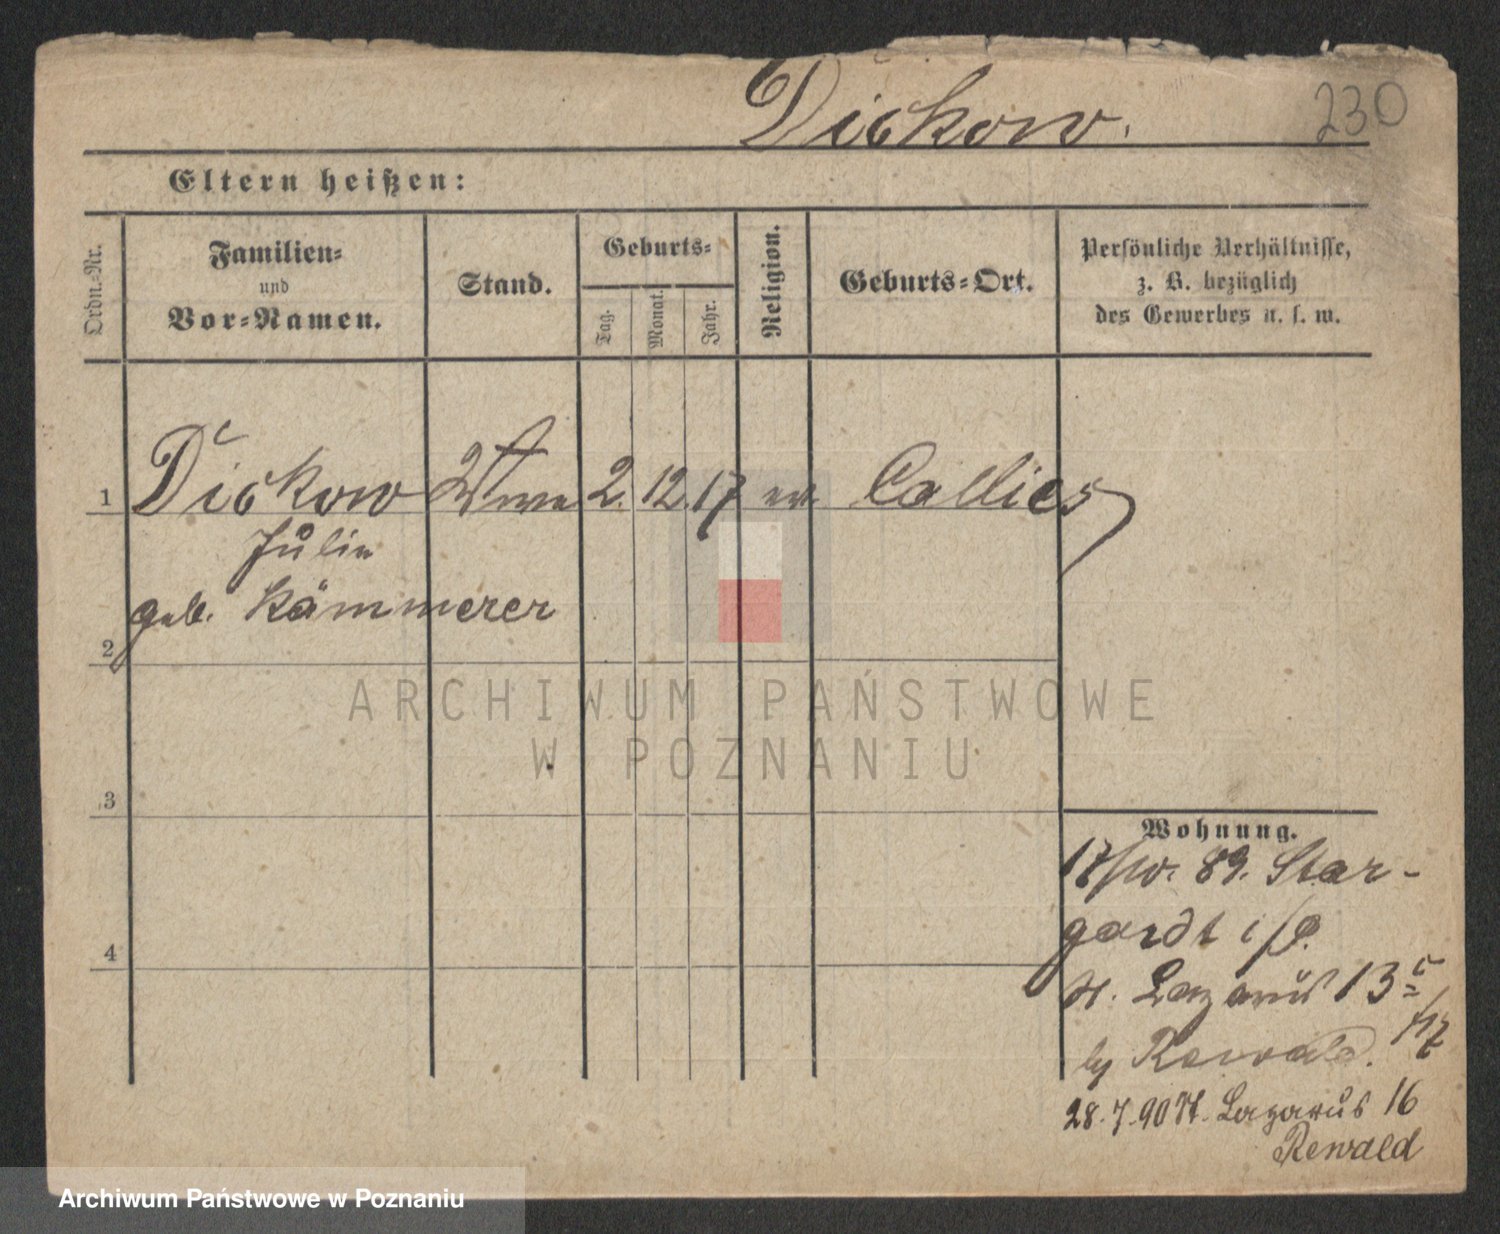 Dickow.
230
Eltern heißen:
Ordn.-Nr.
Familien-
und
Vor-Namen.
Stand.
Geburts-
Tag.
Monat.
Jahr.
Religion.
Geburts-Ort.
Persönliche Verhältnisse,
z. B. bezüglich
des Gewerbes u. s. w.
1 Dickow Wwe 2. 12. 17 ev. Callies
Julie
geb. Kämmerer
2
ARCHIWUM PAŃSTWOWE
W POZNANIU
3
Wohnung.
89. Star-
4
gardt i/P.
St. Lazarus 13
by Rewald.
28.7.90 St. Lazarus 16
Rewald
Archiwum Państwowe w Poznaniu